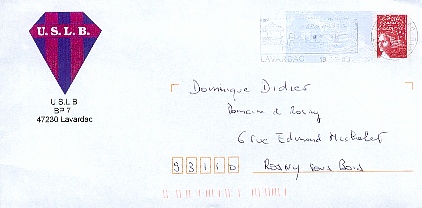 U.S.L.B.
U S L B
BP 7
47230 Lavardac
LAVARDAC
Dominique Didier
Domaine de Rosny
6 rue Edmund Michelet
93110 Rosny sous Bois